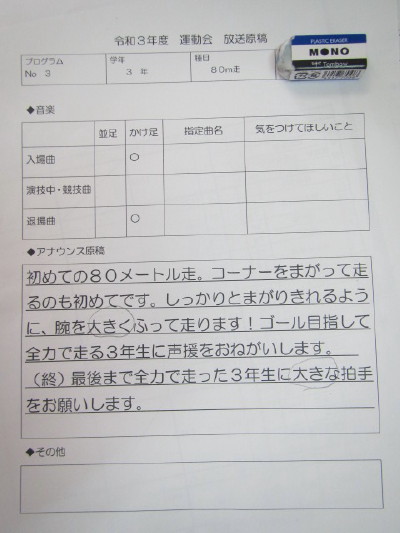 令和３年度　運動会　放送原稿
PLASTIC ERASER
MONO
Tombow
プログラム
No 3
学年
3 年
種目
８０ｍ走
◆音楽
並足 かけ足 指定曲名 気をつけてほしいこと
入場曲 ○
演技中・競技曲
退場曲 ○
◆アナウンス原稿
初めての８０メートル走。コーナーをまがって走
るのも初めてです。しっかりとまがりきれるよう
に、腕を大きくふって走ります！ゴール目指して
全力で走る３年生に声援をおねがいします。
（終）最後まで全力で走った３年生に大きな拍手
をお願いします。
◆その他